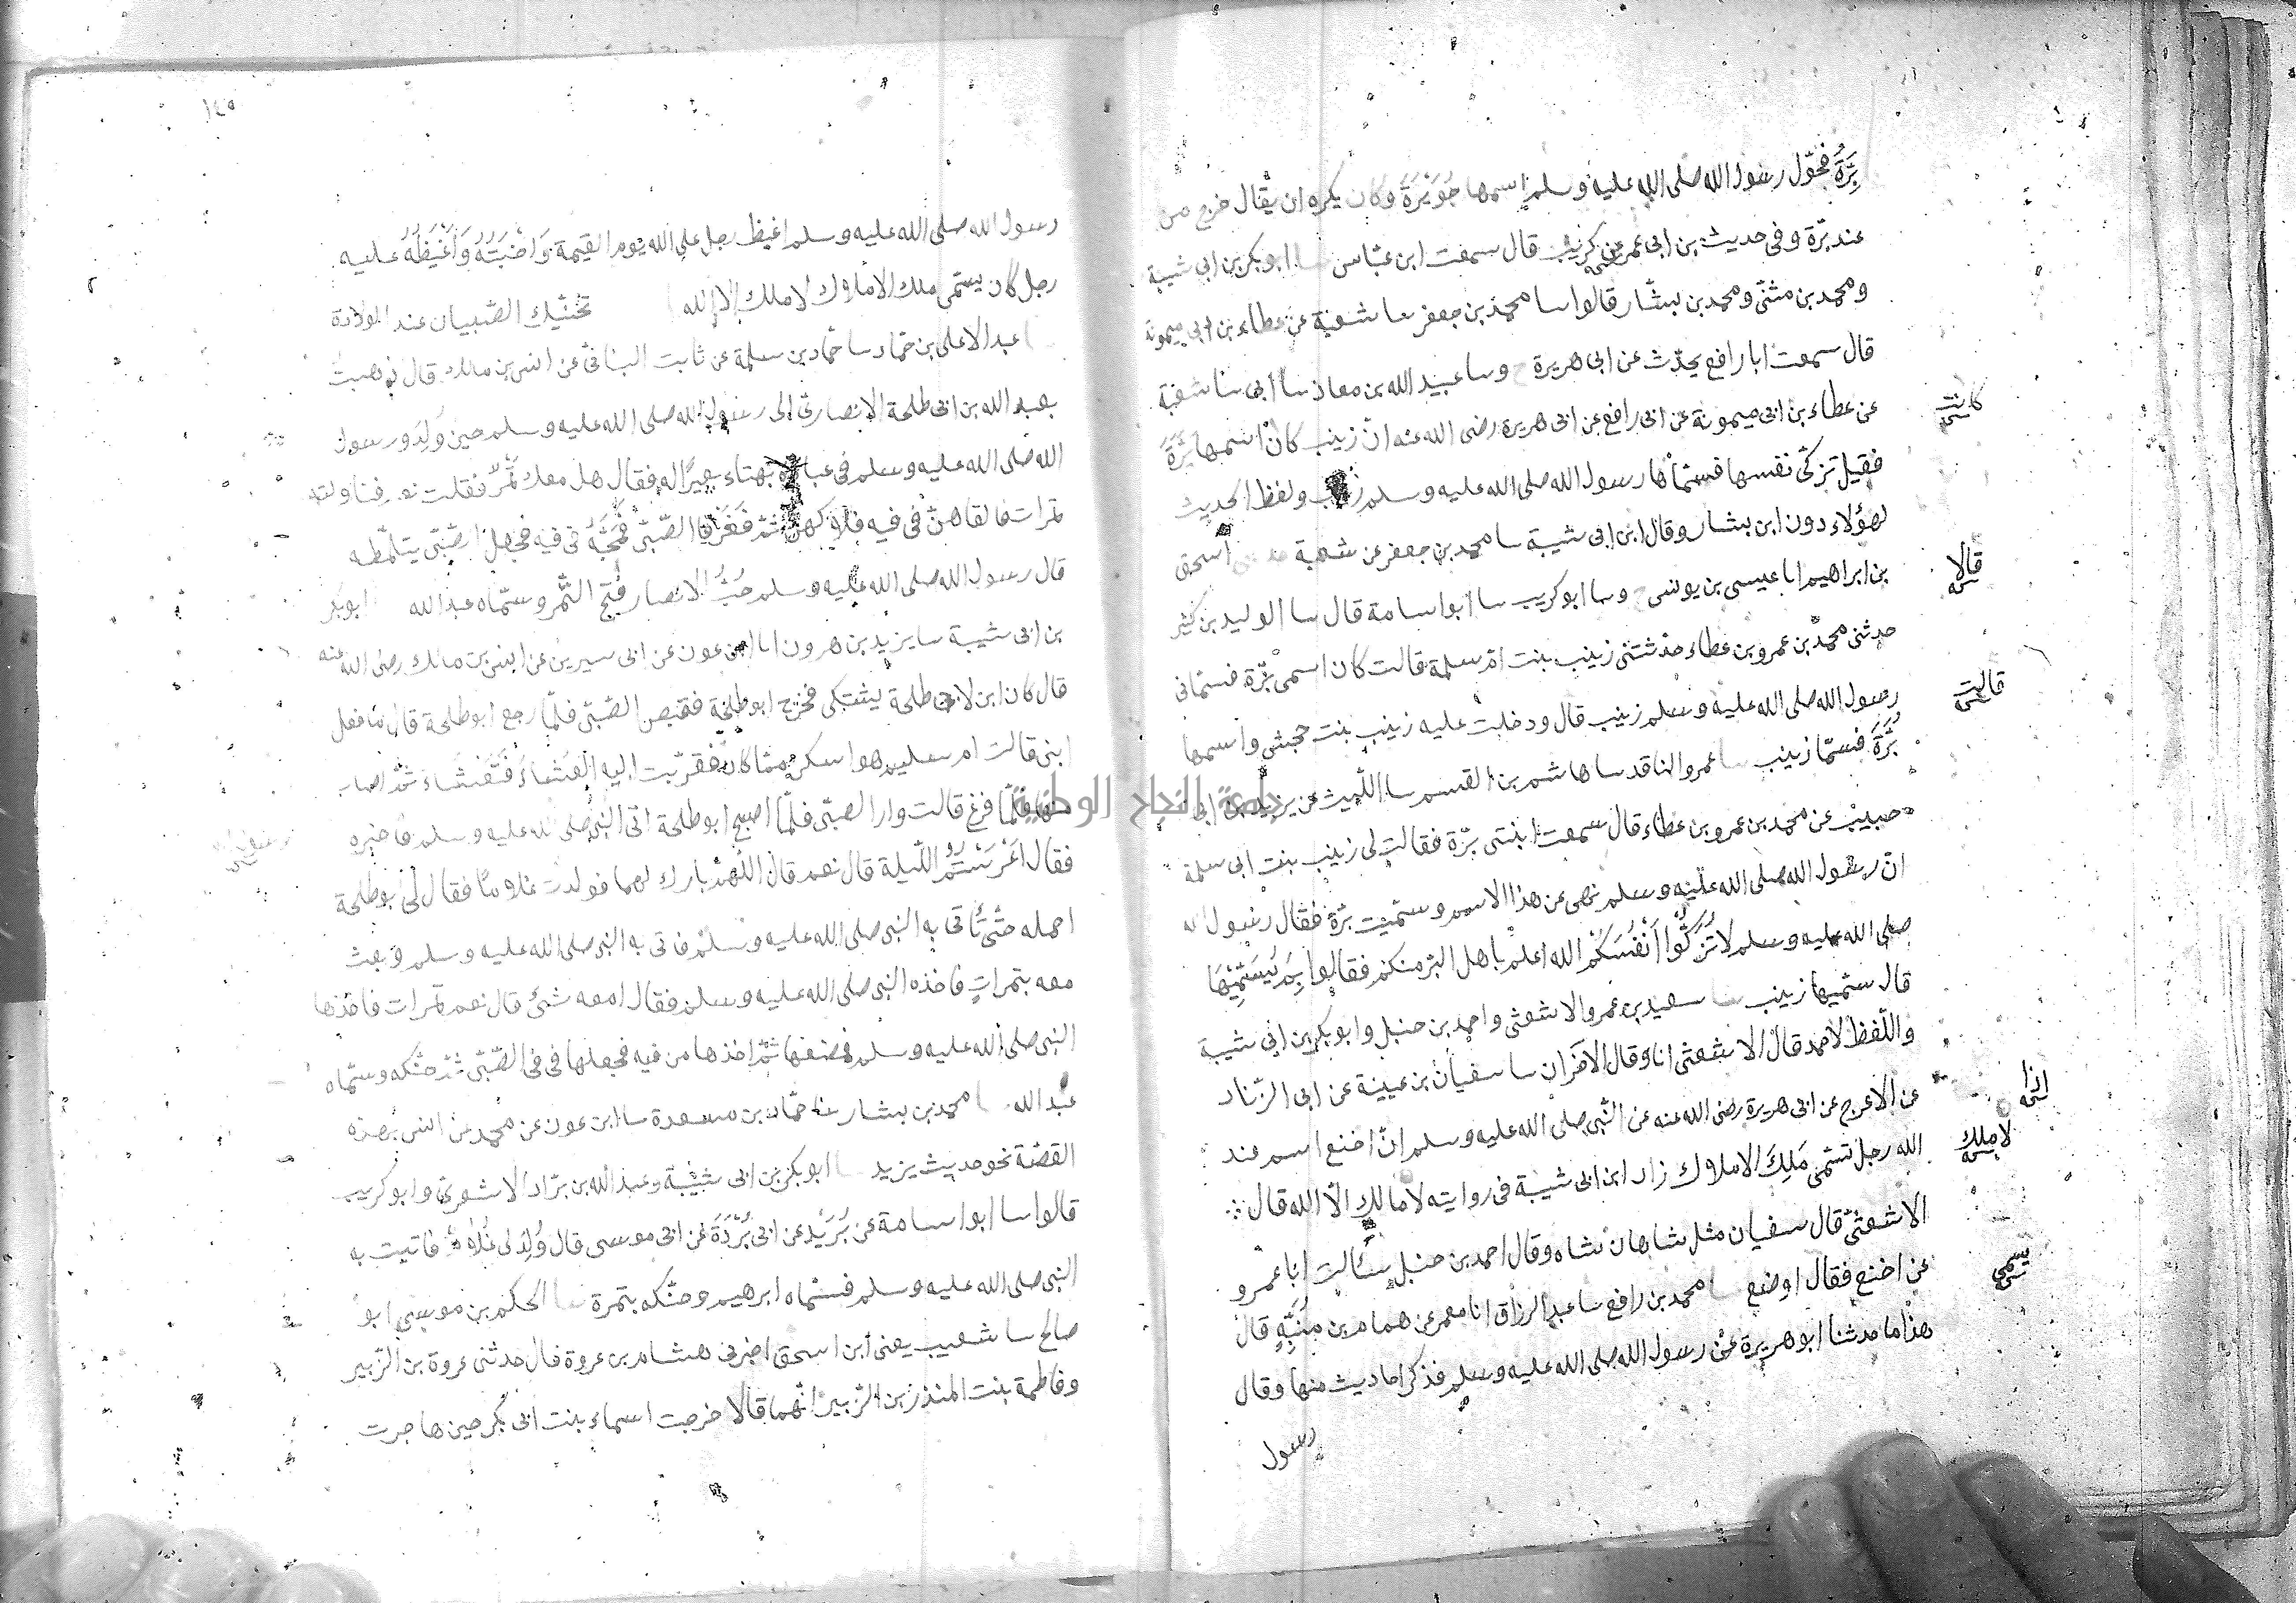 بَرَّةُ فحوّل رسول الله صلى الله عليه وسلم اسمها جُوَيْرَةَ وكان يكره ان يقال خرج من
عند برّة وفى حديث بن ابى عمر عن كريب قال سمعت ابن عباس سا ابو بكر بن ابى شيبة
ومحمد بن مثنّى ومحمد بن بشّار قالوا سا محمد بن جعفر سا شعبة عن عطاء بن ابى ميمونة
قال سمعت ابا رافع يحدّث عن ابى هريرة ح وسا عبيد الله بن معاذ سا أبى سا شعبة
عن عطاء بن ابى ميمونة عن ابى رافع عن ابى هريرة رضى الله عنه انّ زينب كان اسمها بَرَّةَ
كانت
فقيل تزكّى نفسها فسمّاها رسول الله صلى الله عليه وسلم زينب ولفظ الحديث
لهؤلاء دون ابن بشار وقال ابن ابى شيبة سا محمد بن جعفر عن شعبة اسحق
بن ابراهيم انا عيسى بن يونس ح وسا ابو كريب سا ابو اسامة قال سا الوليد بن كثير
قالا
حدثنى محمد بن عمرو بن عطاء حدثتنى زينب بنت امّ سلمة قالت كان اسمى برّة فسمّانى
رسول الله صلى الله عليه وسلم زينب قال ودخلت عليه زينب بنت جحش واسمها
قالت
بُرَّةَ فسمّا زينب سا عمرو الناقد سا هاشم بن القسم سا الليث عن يزيد بن ابى
حبيب عن محمد بن عمرو بن عطاء قال سمعت ابنتى برّة فقالت لى زينب بنت ابى سلمة
انّ رسول الله صلى الله عليه وسلم نهى عن هذا الاسم وسمّيت برّة فقال رسول الله
صلى الله عليه وسلم لا تُزَكُّوا أَنْفُسَكُمْ الله اعلم باهل البرّ منكم فقالوا بِمَ نُسَمِّيهَا
قال سمّيها زينب سا سعيد بن عمرو الاشعثى واحمد بن حنبل وابو بكر بن ابى شيبة
واللّفظ لاحمد قال الاشعثى انا وقال الاخَران سا سفيان بن عيينة عن ابى الزّناد
عن الاعرج عن ابى هريرة رضى الله عنه عن النّبى صلى الله عليه وسلم انّ اخنع اسم عند
اذا
الله رجل تسمّى مَلِكَ الاملاك زاد ابن ابى شيبة فى روايته لا مالك الّا الله قال
لا ملك
الاشعثىّ قال سفيان مثل شاهان شاه وقال احمد بن حنبل سئالت ابا عمرو
عن اخنع فقال اوضع سا محمد بن رافع سا عبد الرزاق انا معمر عن همام بن مُنَبِّهٍ قال
يسمى
هذا ما حدثنا ابو هريرة عن رسول الله صلى الله عليه وسلم فذكر احاديث منها وقال
رسول
١٤٥
رسول الله صلى الله عليه وسلم اغيظ رجل على الله يوم القيمة وَاخْبَثُهُ وَأَغْيَظُهُ عليه
رجل كان يسمّى ملك الاملاك لا ملك الا الله تحنيك الصّبيان عند الولادة
عبد الاعلى بن حمّاد سا حمّاد بن سلمة عن ثابت البنانى عن انس بن مالك قال ذهبت
بعبد الله بن ابى طلحة الانصارىّ الى رسول الله صلى الله عليه وسلم حين وُلِدَ ورسول
الله صلى الله عليه وسلم فى عباءة يهناء بعيرًا له فقال هل معك تَمْرٌ فقلت نعم فناولته
تمرات فالقاهنّ فى فيه فلاكهنّ ثمّ فَغَرَ فا الصّبىّ فَمَجَّهُ فى فيه فجعل الصّبىّ يتلمّظه
قال رسول الله صلى الله عليه وسلم حُبُّ الانصار فُتِحَ التّمر وسمّاه عبد الله ابو بكر
بن ابى شيبة سا يزيد بن هرون انا ابن عون عن ابى سيرين عن انس بن مالك رضى الله عنه
قال كان ابن لابى طلحة يشتكى فخرج ابو طلحة فقبض الصّبىّ فلمّا رجع ابو طلحة قال ما فعل
ابنى قالت ام سليم هو اسكن ممّا كان فقرّبت اليه العَشاءُ فَتَعَشّاء ثمّ اصاب
منها فلمّا فرغ قالت وارا الصبّى فلمّا اصبح ابو طلحة اتى النبى صلى الله عليه وسلم فاخبره
فقال اَعْرَسْتُمُ اللّيلة قال نعم قال اللهمّ بارك لهما فولدت غلامًا فقال لى ابو طلحة
احمله حتّى تأتى به النبى صلى الله عليه وسلم فاتى به النبى صلى الله عليه وسلم وبعث
معه بتمراتٍ فاخذه النبى صلى الله عليه وسلم فقال امعه شىٌ قال نعم تمرات فاخذها
النبى صلى الله عليه وسلم فمضغها ثمّ اخذها من فيه فجعلها فى فى الصّبىّ ثمّ حنّكه وسمّاه
عبد الله سا محمد بن بشار سا حمّاد بن مسعدة سا ابن عون عن محمد عن انس بهذه
القصّة نحو حديث يزيد سا ابو بكر بن ابى شيبة وعبد الله بن برّاد الاشعرىّ وابو كريب
قالوا سا ابو اسامة عن بُرَيْد عن ابى بُرْدَةَ عن ابى موسى قال وُلِدَ لى غُلامٌ فاتيت به
النبى صلى الله عليه وسلم فسمّاه ابرهيم وحنّكه بتمرة سا الحكم بن موسى ابو
صالح سا شعيب يعنى ابن اسحق اخبرنى هشام بن عروة قال حدثنى عروة بن الزّبير
وفاطمة بنت المنذر بن الزّبير انّهما قالا خرجت اسماء بنت ابى بكر حين هاجرت
جامعة النجاح الوطنية